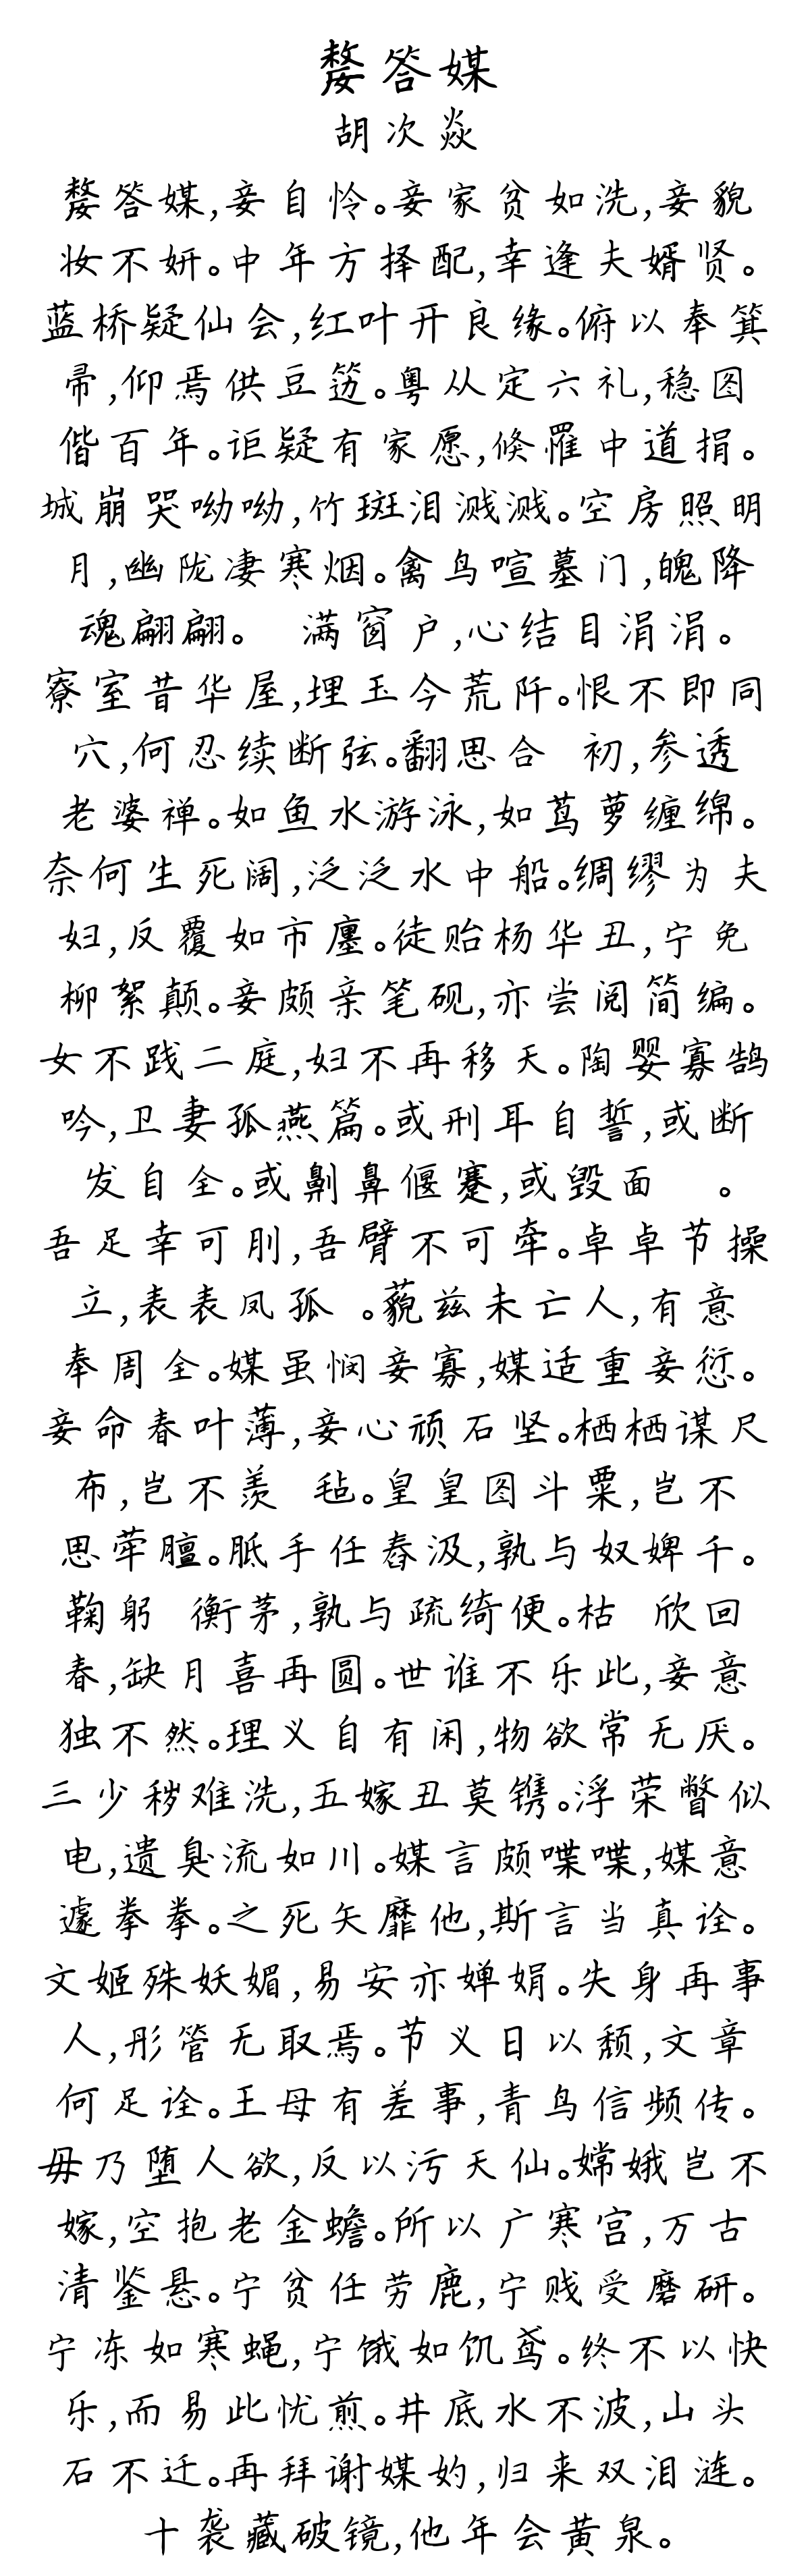 嫠答媒
胡次焱
嫠答媒,妾自怜。妾家贫如洗,妾貌
妆不妍。中年方择配,幸逢夫婿贤。
蓝桥疑仙会,红叶开良缘。俯以奉箕
帚,仰焉供豆笾。粤从定六礼,稳图
偕百年。讵疑有家愿,倏罹中道捐。
城崩哭呦呦,竹斑泪溅溅。空房照明
月,幽陇凄寒烟。禽鸟喧墓门,魄降
魂翩翩。 满窗户,心结目涓涓。
寮室昔华屋,埋玉今荒阡。恨不即同
穴,何忍续断弦。翻思合 初,参透
老婆禅。如鱼水游泳,如茑萝缠绵。
奈何生死阔,泛泛水中船。绸缪为夫
妇,反覆如市廛。徒贻杨华丑,宁免
柳絮颠。妾颇亲笔砚,亦尝阅简编。
女不践二庭,妇不再移天。陶婴寡鹄
吟,卫妻孤燕篇。或刑耳自誓,或断
发自全。或劓鼻偃蹇,或毁面 。
吾足幸可刖,吾臂不可牵。卓卓节操
立,表表凤孤 。藐兹未亡人,有意
奉周全。媒虽悯妾寡,媒适重妾愆。
妾命春叶薄,妾心顽石坚。栖栖谋尺
布,岂不羡 毡。皇皇图斗粟,岂不
思荤膻。胝手任舂汲,孰与奴婢千。
鞠躬 衡茅,孰与疏绮便。枯 欣回
春,缺月喜再圆。世谁不乐此,妾意
独不然。理义自有闲,物欲常无厌。
三少秽难洗,五嫁丑莫镌。浮荣瞥似
电,遗臭流如川。媒言颇喋喋,媒意
遽拳拳。之死矢靡他,斯言当真诠。
文姬殊妖媚,易安亦婵娟。失身再事
人,彤管无取焉。节义日以颓,文章
何足诠。王母有差事,青鸟信频传。
毋乃堕人欲,反以污天仙。嫦娥岂不
嫁,空抱老金蟾。所以广寒宫,万古
清鉴悬。宁贫任劳鹿,宁贱受磨研。
宁冻如寒蝇,宁饿如饥鸢。终不以快
乐,而易此忧煎。井底水不波,山头
石不迁。再拜谢媒妁,归来双泪涟。
十袭藏破镜,他年会黄泉。